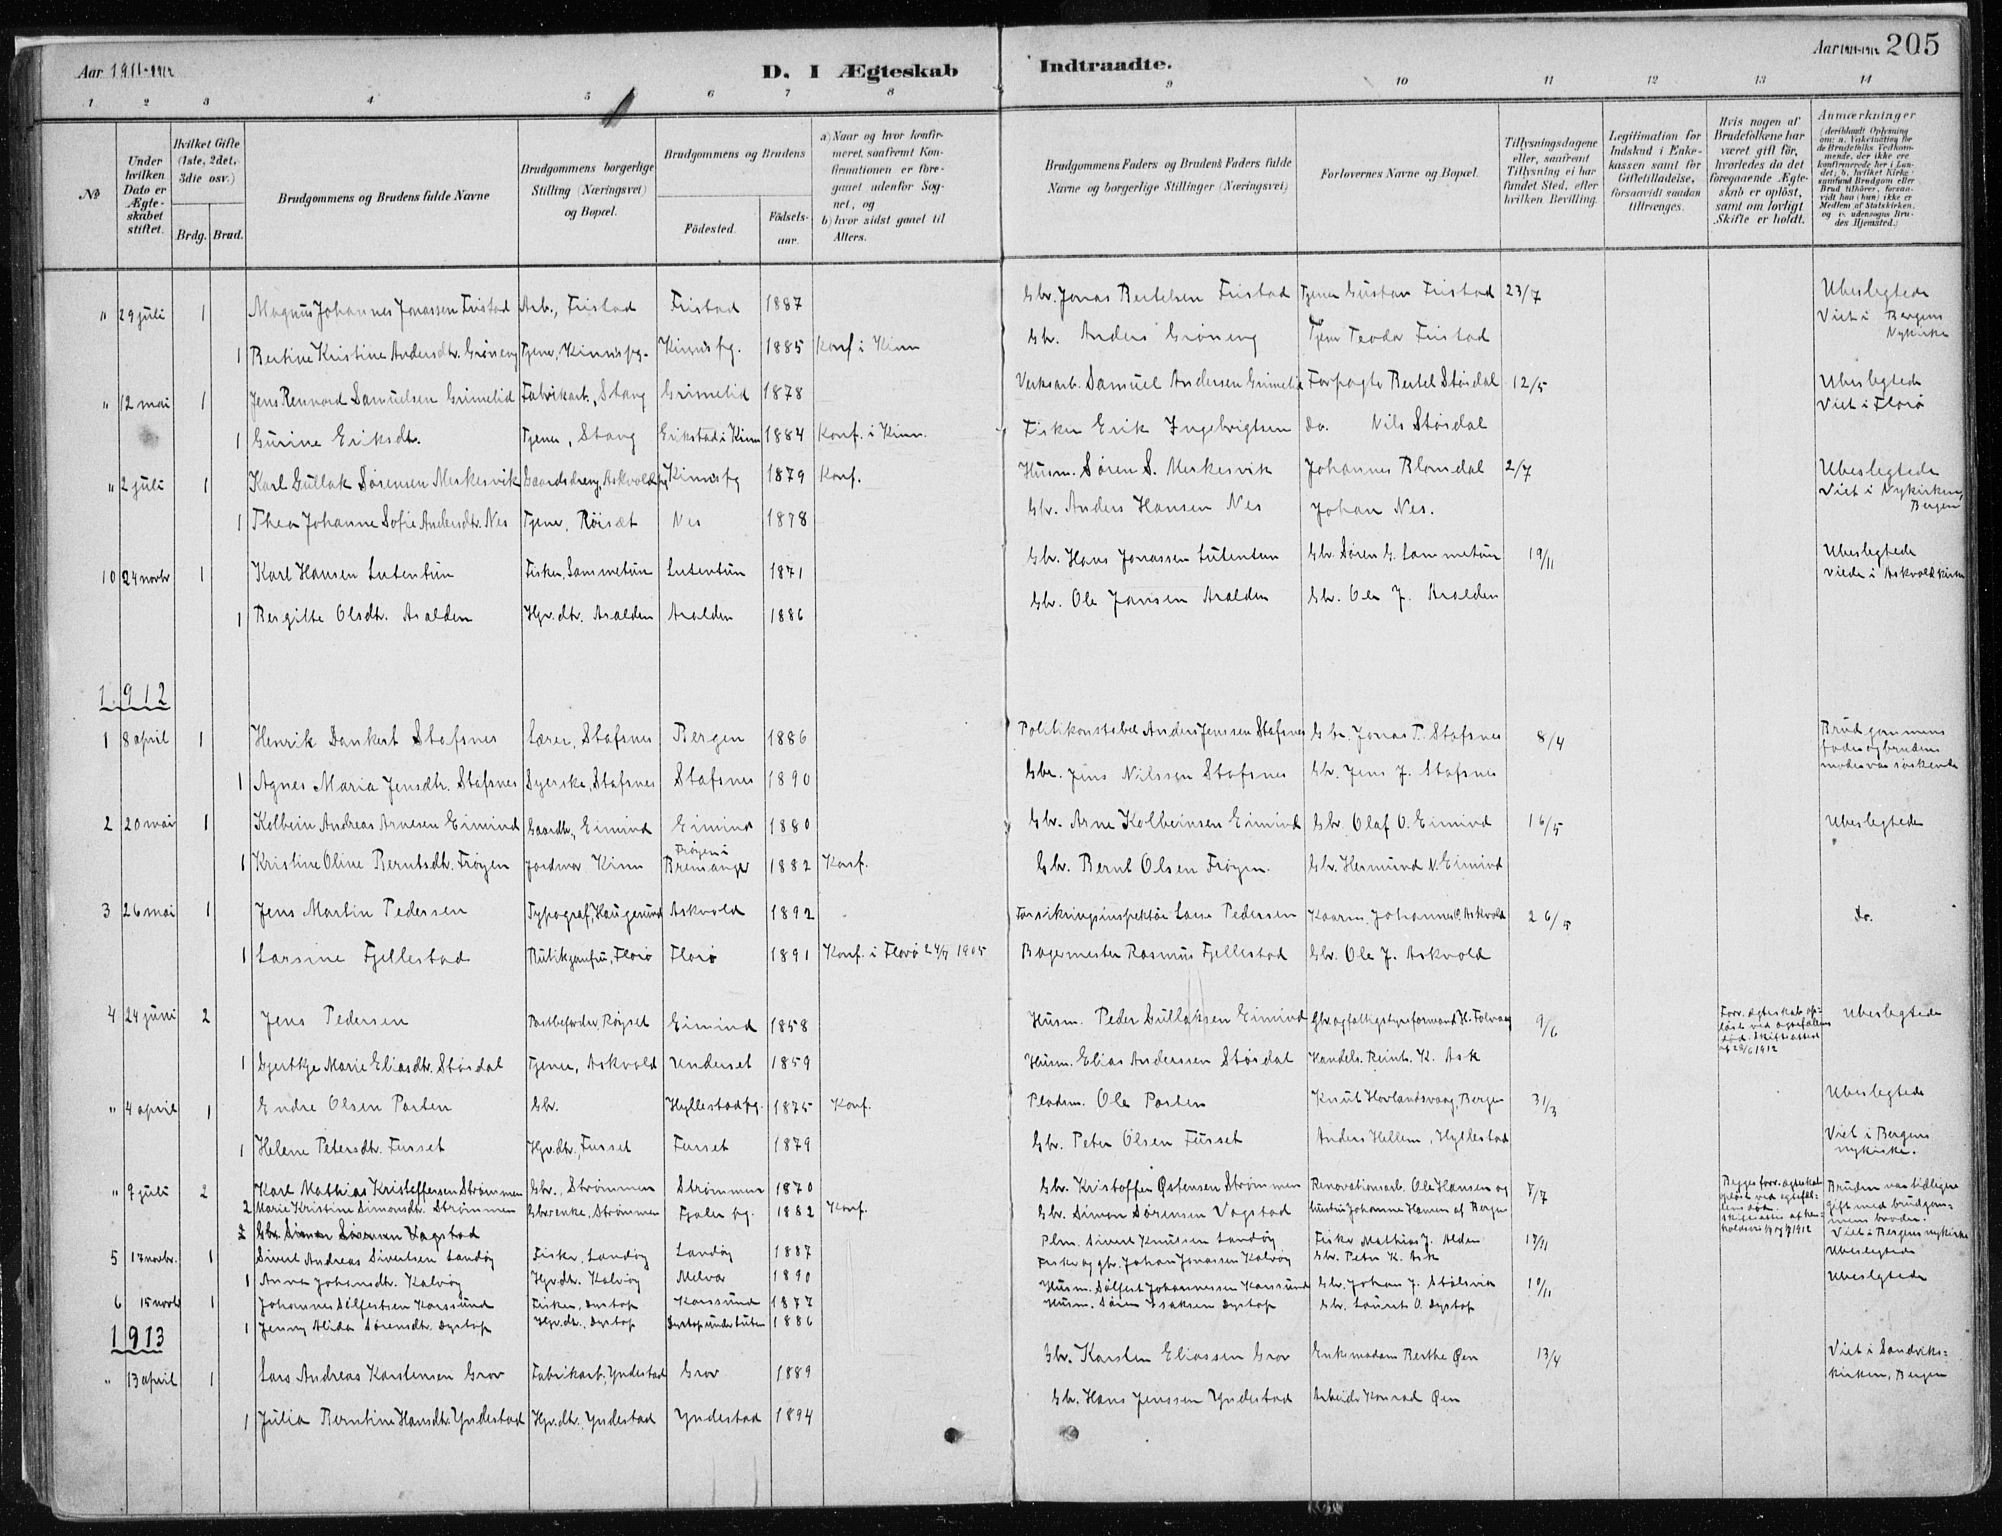 Aar 1911-1912
D. I Ægteskab Indtraadte.
Aar 1911-1912 205
1 2 3 4 5 6 7 8 9 10 11 12 13 14
No
Under hvilken Dato er Ægteskabet stiftet.
Hvilket Gifte (1ste, 2det, 3die osv.)
Brdg. Brud.
Brudgommens og Brudens fulde Navne
Brudgommens borgerlige Stilling (Næringsvei) og Bopæl.
Brudgommens og Brudens
Fødested.
Fødselsaar.
a) Naar og hvor konfirmeret, saafremt Konfirmationen er foregaaet udenfor Sognet, og
b) hvor sidst gaaet til Alters.
Brudgommens Faders og Brudens Faders fulde Navne og borgerlige Stillinger (Næringsvei)
Forlovernes Navne og Bopæl.
Tillysningsdagene eller, saafremt Tillysning ei har fundet Sted, efter hvilken Bevilling.
Legitimation for Indskud i Enkekassen samt for Giftetilladelse, forsaavidt saadan tiltrænges.
Hvis nogen af Brudefolkene har været gift før, hvorledes da det foregaaende Ægteskab er opløst, samt om lovligt Skifte er holdt.
Anmærkninger (deriblandt Oplysning om: a. Vakcination for de Brudefolks Vedkommende, der ikke ere konfirmerede her i Landet; b. hvilket Kirkesamfund Brudgom eller Brud tilhører, forsaavidt han (hun) ikke er Medlem af Statskirken, og c. udensogns Brudes Hjemsted.)
" 29 juli 1 Magnus Johannes Jonassen Fristad Arb., Fristad Fristad 1887 Gbr. Jonas Bertelsen Fristad Tjener Gustav Fristad 23/7 Ubeslegtede Viet i Bergens Nykirke
1 Bertine Kristine Andersdtr. Grøneng Tjener, Kinns pg. Kinns pg. 1885 Konf i Kinn Gbr. Anders Grøneng Tjener Teodor Fristad
" 12 mai 1 Jens Rennord Samuelsen Grimelid Fabrikarb., Stang Grimelid 1878 Verksarb. Samuel Andersen Grimelid Forpagter Bertel Støsdal 12/5 Ubeslegtede Viet i Florø
1 Gurine Eriksdtr. Tjener, Stang Erikstad i Kinn 1884 Konf. i Kinn. Fisker Erik Ingebrigtsen do. Nils Støsdal
" 2 juli 1 Karl Gullak Sørensen Meskesvik Gaardsdreng, Askvold pg Kinns pg 1879 Konf. Husm. Søren S. Meskesvik Johannes Blomdal 2/7 Ubeslegtede Viet i Nykirken, Bergen
1 Thea Johanne Sofie Andersdtr. Nes Tjener, Røisæt Nes 1878 Gbr. Anders Hansen Nes Johan Nes.
10 24 novbr 1 Karl Hansen Lutentun Fisker, Lammetun Lutentun 1871 Gbr. Hans Jonassen Lutentun Gbr. Søren G. Lammetun 19/11 Ubeslegtede Viede i Askvold kirke
1 Bergitte Olsdtr. Aralden Hgr.dtr. Aralden Aralden 1886 Gbr. Ole Jansen Aralden Gbr. Ole J. Aralden
1912
1 8 april 1 Henrik Dankert Stafsnes Lærer, Stafsnes Bergen 1886 Politikonstabel Anders Jenssen Stafsnes Gbr. Jonas P. Stafsnes 8/4 Brudgommens fader og brudens moder var søskende
1 Agnes Maria Jensdtr. Stafsnes Syerske, Stafsnes Stafsnes 1890 Gbr. Jens Nilssen Stafsnes Gbr. Jens J. Stafsnes
2 20 mai 1 Kolbein Andreas Arnesen Eimind Gaardbr, Eimind Eimind 1880 Gbr. Arne Kolbeinsen Eimind Gbr. Olaf O. Eimind 16/5 Ubeslegtede
1 Kristine Oline Berntsdtr. Frøyen Jordmor Kinn Frøyen i Bremanger 1882 Konf. Gbr. Bernt Olsen Frøyen. Gbr. Hermund N. Eimind
3 26 mai 1 Jens Martin Pedersen Typograf, Haugesund Askvold 1892 Forsikringsinspektør Lasse Pedersen Kaarm. Johannes O. Askvold 26/5 do.
1 Larsine Fjellestad Butikjomfru, Florø Florø 1891 Konf. i Florø 24/9 1905 Bagermester Rasmus Fjellestad Gbr. Ole J. Askvold
4 24 juni 2 Jens Pedersen Postbefordrer, Røyset Eimind 1858 Husm. Peder Gullaksen Eimind Gbr og fattigstyreformand H. Folvaag 9/6 Forr. ægteskab opløst ved egtefællens død. Skifteattest af 20/6 1912 Ubeslegtede
1 Gjertkje Marie Eliasdtr. Støsdal Tjener, Askvold Underset 1859 Husm. Elias Anderssen Støsdal Handels. Reinh. K. Ask
" 4 april 1 Endre Olsen Porten Gbr. Hyllestad pg. 1875 Konf. Pladsm. Ole Porten Knut Hovlandsvaag, Bergen 31/3 Ubeslegtede
1 Helene Petersdtr. Fusset Hgr.dtr. Fusset Fusset 1879 Gbr. Peter Olsen Fusset Anders Hellem, Hyllestad Viet i Bergens nykirke.
" 9 juli 2 Karl Mathias Kristoffersen Strømmen Gbr., Strømmen Strømmen 1870 Gbr. Kristoffer Østensen Strømmen Renovationsarb. Ole Hansen og 7/7 Begges forr. ægteskab opløst ved egtefællens død. Bruden var tidligere gift med brudgommens broder.
2 Marie Kristine Simonsdtr. Strømmen Gbr.enke, Strømmen Fjaler pg. 1882 Konf. Gbr. Simon Sørensen Vagstad hustru Johanne Hansen af Bergen Viet i Bergens nykirke
2 Gbr. Simon Sørensen Vagstad
5 17 novbr. 1 Sivert Andreas Sivertsen Landøy Fisker, Landøy Landøy 1887 Plm. Sivert Knutsen Landøy Fisker Mathias J. Alden 17/11 Ubeslegtede
1 Anna Johansdtr. Kalvøy Hgr.dtr. Kalvøy Melvær 1890 Fisker og gbr. Johan Jonassen Kalvøy Gbr. Peter K. Ask
6 15 novb 1 Johannes Sølfestsen Korssund Fisker, Dystop Korssund 1877 Husm. Sølfest Johannessen Korssund Gbr. Johan J. Stølsvik 10/11 Ubeslegtede
1 Jenny Alida Sørensdtr. Dystop Hgr.dtr., Dystop 1886 Husm. Søren Isaksen Dystop Gbr. Laurits O. Dystop
1913
" 13 april 1 Lars Andreas Karstensen Grov Fabrikarb., Yndestad Grov 1889 Gbr. Karsten Eliassen Grov Enkemadam Berthe Øen 13/4 Viet i Sandvikskirken, Bergen
1 Julia Berntine Hansdtr. Yndestad Hgr.dtr. Yndestad Yndestad 1894 Gbr. Hans Jenssen Yndestad Arbeider Konrad Øen